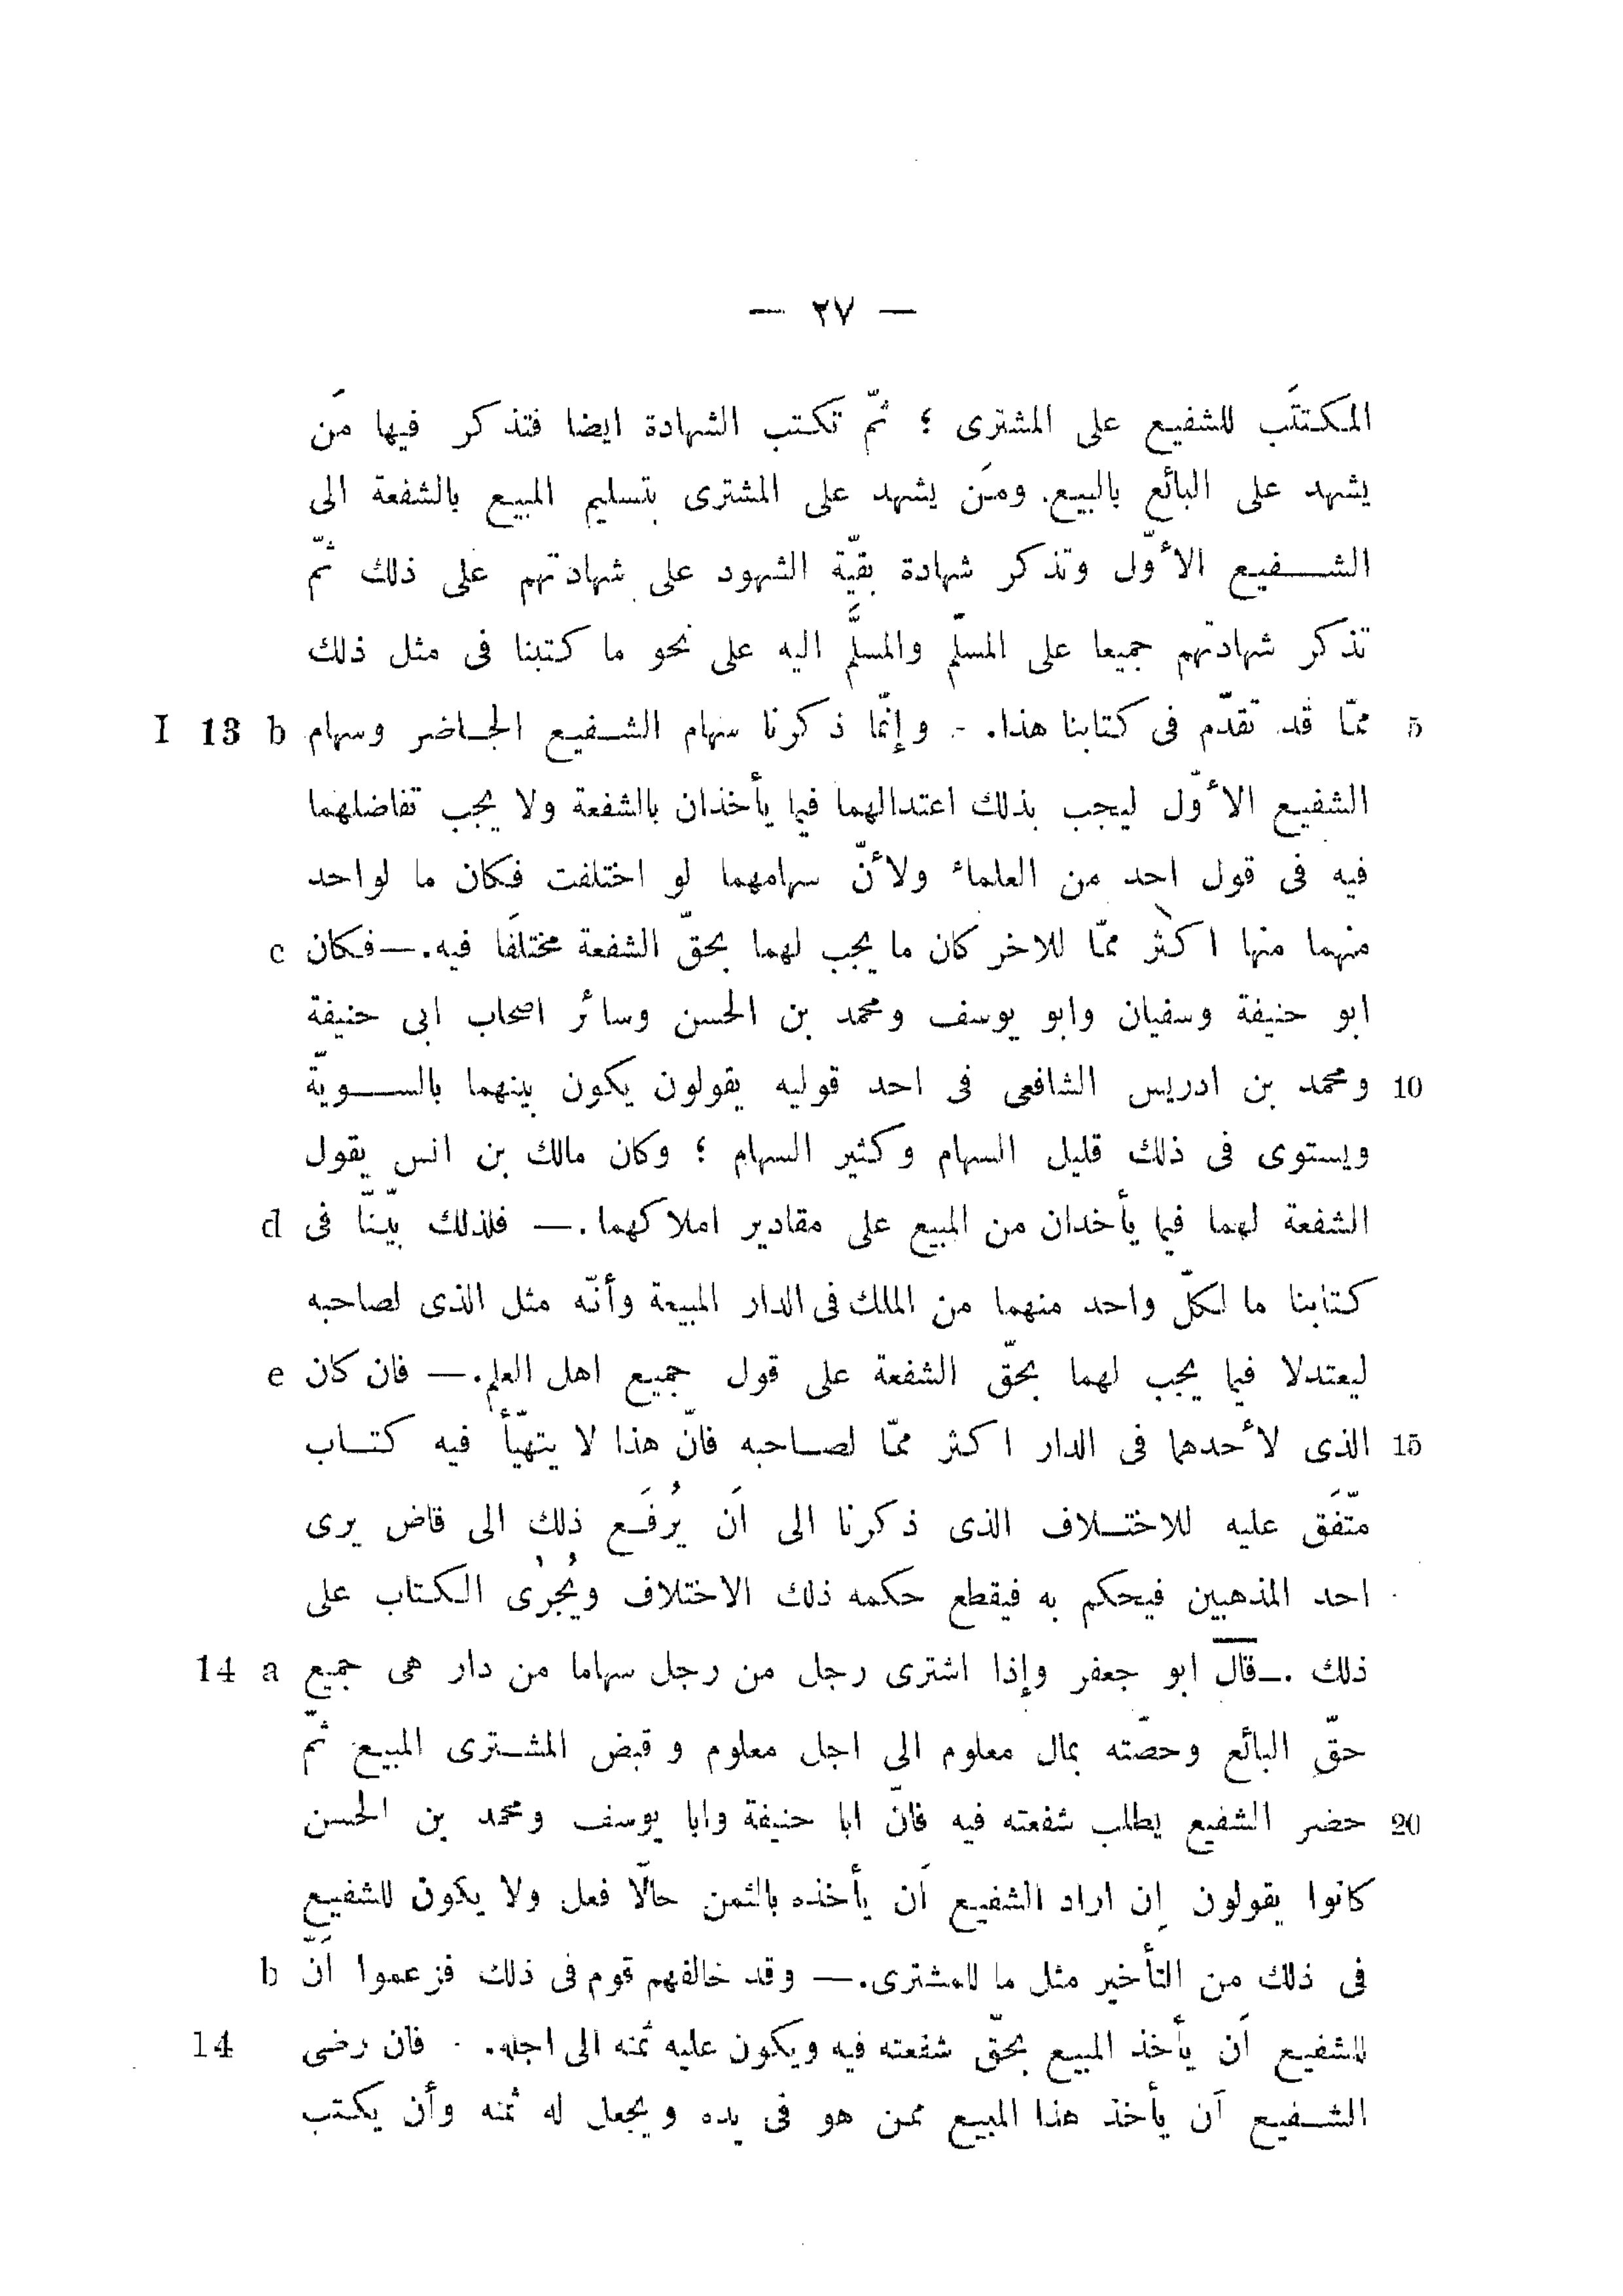 — ٢٧ —
المكتتَب للشفيع على المشترى ؛ ثمّ تكتب الشهادة ايضا فتذكر فيها مَن
يشهد على البائع بالبيع. ومَن يشهد على المشترى بتسليم المبيع بالشفعة الى
الشفيع الأوّل وتذكر شهادة بقيّة الشهود على شهادتهم على ذلك ثمّ
تذكر شهادتهم جميعا على المسلّم والمسلَّم اليه على نحو ما كتبنا فى مثل ذلك
5 ممّا قد تقدّم فى كتابنا هذا. - وإنّما ذكرنا سهام الشفيع الحاضر وسهام I 13 b
الشفيع الأوّل ليجب بذلك اعتدالهما فيما يأخذان بالشفعة ولا يجب تفاضلهما
فيه فى قول احد من العلماء ولأنّ سهامهما لو اختلفت فكان ما لواحد
منهما منها اكثر ممّا للاخر كان ما يجب لهما بحقّ الشفعة مختلَفا فيه.— فكان c
ابو حنيفة وسفيان وابو يوسف ومحمد بن الحسن وسائر اصحاب ابى حنيفة
10 ومحمد بن ادريس الشافعى فى احد قوليه يقولون يكون بينهما بالسويّة
ويستوى فى ذلك قليل السهام وكثير السهام ؛ وكان مالك بن انس يقول
الشفعة لهما فيما يأخدان من المبيع على مقادير املاكهما.— فلذلك بيّنّا فى d
كتابنا ما لكلّ واحد منهما من الملك فى الدار المبيعة وأنّه مثل الذى لصاحبه
ليعتدلا فيما يجب لهما بحقّ الشفعة على قول جميع اهل العلم.— فان كان e
15 الذى لأحدهما فى الدار اكثر ممّا لصاحبه فانّ هذا لا يتهيّأ فيه كتاب
متّفَق عليه للاختلاف الذى ذكرنا الى اَن يُرفَع ذلك الى قاض يرى
احد المذهبين فيحكم به فيقطع حكمه ذلك الاختلاف ويُجرْى الكتاب على
ذلك .— قال ابو جعفر وإذا اشترى رجل من رجل سهاما من دار هى جميع 14 a
حقّ البائع وحصّته بمال معلوم الى اجل معلوم وقبض المشترى المبيع ثمّ
20 حضر الشفيع يطلب شفعته فيه فانّ ابا حنيفة وابا يوسف ومحمد بن الحسن
كانوا يقولون إن اراد الشفيع اَن يأخذه بالثمن حالّا فعل ولا يكون للشفيع
فى ذلك من التأخير مثل ما للمشترى.— وقد خالفهم قوم فى ذلك فزعموا اَنّ b
للشفيع اَن يأخذ المبيع بحقّ شفعته فيه ويكون عليه ثمنه الى اجله. - فان رضى 14
الشفيع اَن يأخذ هذا المبيع ممن هو فى يده ويجعل له ثمنه وأن يكتب